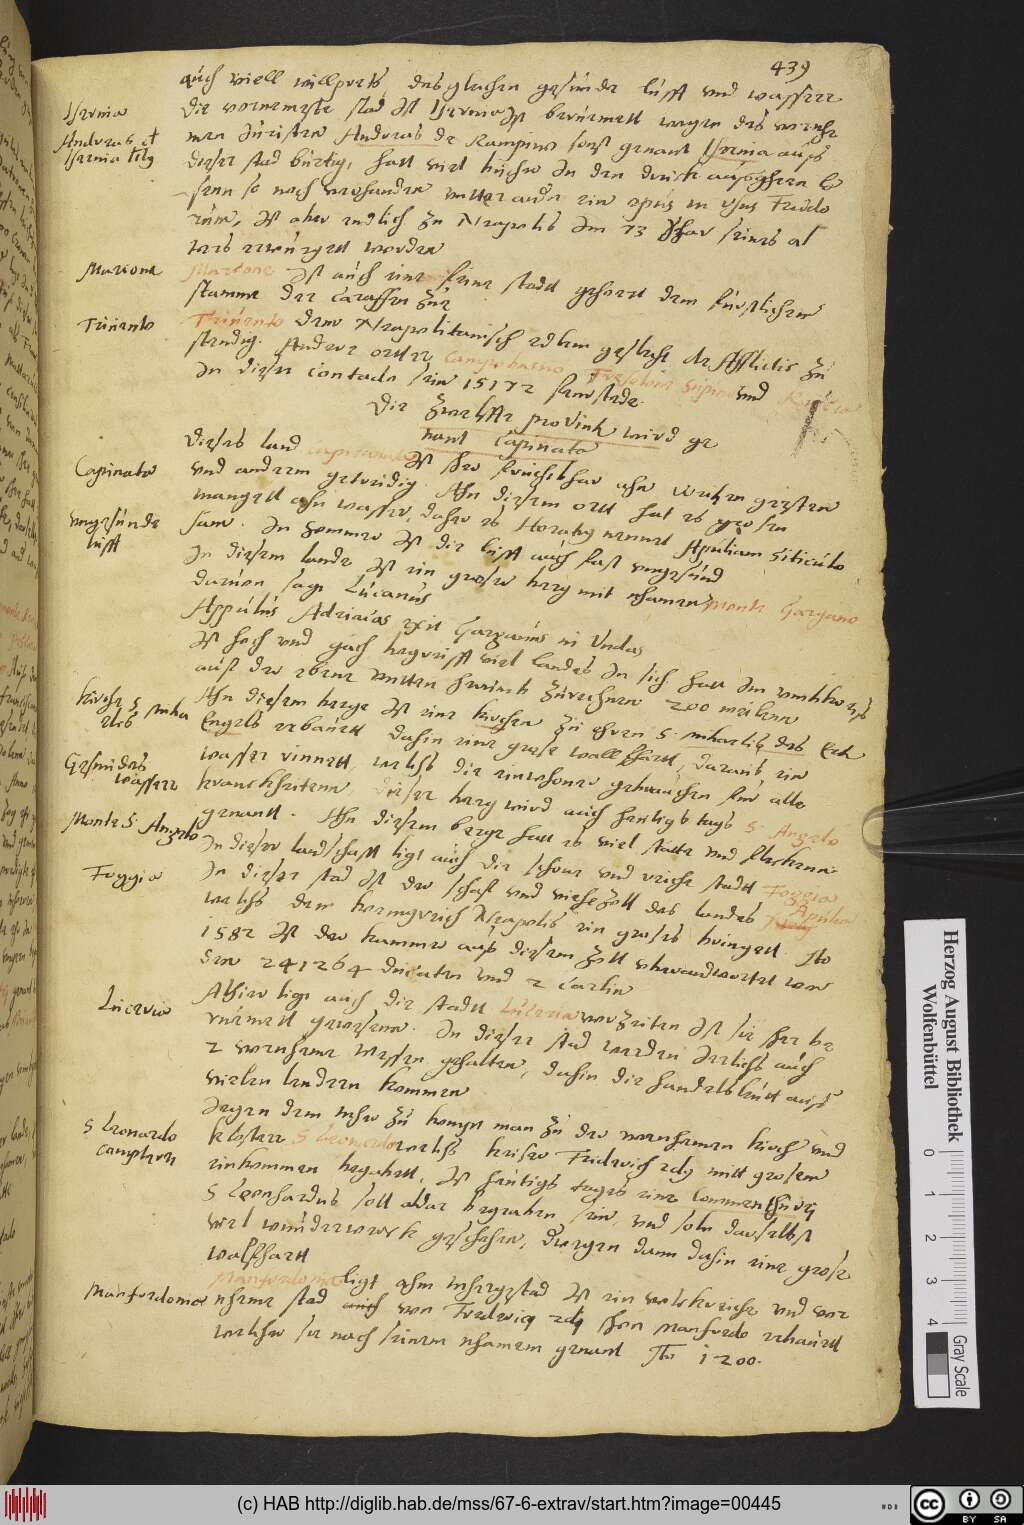 439
auch viell willprets, desgleichen gesunde lufft und wasser
Isernia
die vornemeste stad ist Isernia ist berumett wegen des vorneh
Andreas et
Isernia
men Juristen Andreas de Rampino sonst genant Isernia auss
dieser stad burtig, hatt viel bucher in den druck
so noch vorhanden unter ander ein opus in usus Feudo
rum, ist aber endlich zu Neapolis im 73 Jhar seines al
ters worden
Marione
Marione Ist auch eine feine stadt gehorett dem furstlichem
stamme der Caraffen zue
Triuento
Triuento dem Neapolitanisch edlem geslecht de Afflictis zu
stendig. Andere ortter Campobasso und
In dieser contado sein 15172 fewrstede.
Die zwelffte provink wird ge
nant Capinata
Capinata
Dieses land ist sehr fruchtbar ahn weitzen gersten
und anderm getreidig. Ahn diesem ortt hat es grosen
mangell ahn wasser, daher es Horatius nennet Apuliam siticulo
ungesunde
lufft
sam. In sommer ist die lufft auch fast ungesund
In diesem lande ist ein groser berg mit nhamen Monte Gargano
darvon sagt Lucanus
Appulus Adriaias exit Garganus in Undas
Ist hoch und gach begreifft viel landes in sich hatt im umbkreyss
auss der ebene unten herumb zurechnen 200 meilen
Kirche S Micha
elis
Ahn diesem berge ist eine kirchen zu ehren S. Michaelis des Ertz
Engels erbauett dahin eine grose wallffartt, daraus ein
Gesundes
wasser
wasser rinnett, welchs die einwohner gebrauchen fur alle
kranckheitenn, dieser berg wird auch heutigs tags S. Angelo
Monte S. Angelo
genantt. Ahn diesem berge hatt es viel stette und fleckenn.
In dieser landschafft ligt auch die schone und reiche stadt Foggia
Foggia
In dieser stad ist der schaf und viehezoll des landes Apulia
welchs dem konnigreich Neapolis ein groses bringett. Ao
1582 ist der kammer auss diesem zoll uberandwortet wor
den 241264 ducaten und 2 carlin
Luceria
Alhier ligt auch die stadtt Luceria vorzeiten ist sie sher be
rumett gewesenn. In dieser stad werden Jerlichs auch
2 vornheme Messen gehalten, dahin die handelsleutt auss
vielen lendern kommen
Jegen dem Meher zu kompt man zu der vornhemen kirch und
S Leonardo
kloster S Leonardo welchs keiser Friderich mitt grosem
einkommen begabett, ist heutigs tages eine Commenthurei
S Leonhardus soll aldar begraben sein, und sollen daselbst
viel wunderwerck geschehen, Zwegen dann dahin eine grose
walfhartt
Manfredonia
Manfredonia ligt ahm Mheer stad ist ein volckreiche und vor
nheme stad auch von Frederig shon Manfredo erbauett
welcher sie nach seinem nhamen genant Ao 1200.
Herzog August Bibliothek
Wolfenbüttel
0 1 2 3 4
Gray Scale
(c) HAB http://diglib.hab.de/mss/67-6-extrav/start.htm?image=00445
cc BY SA